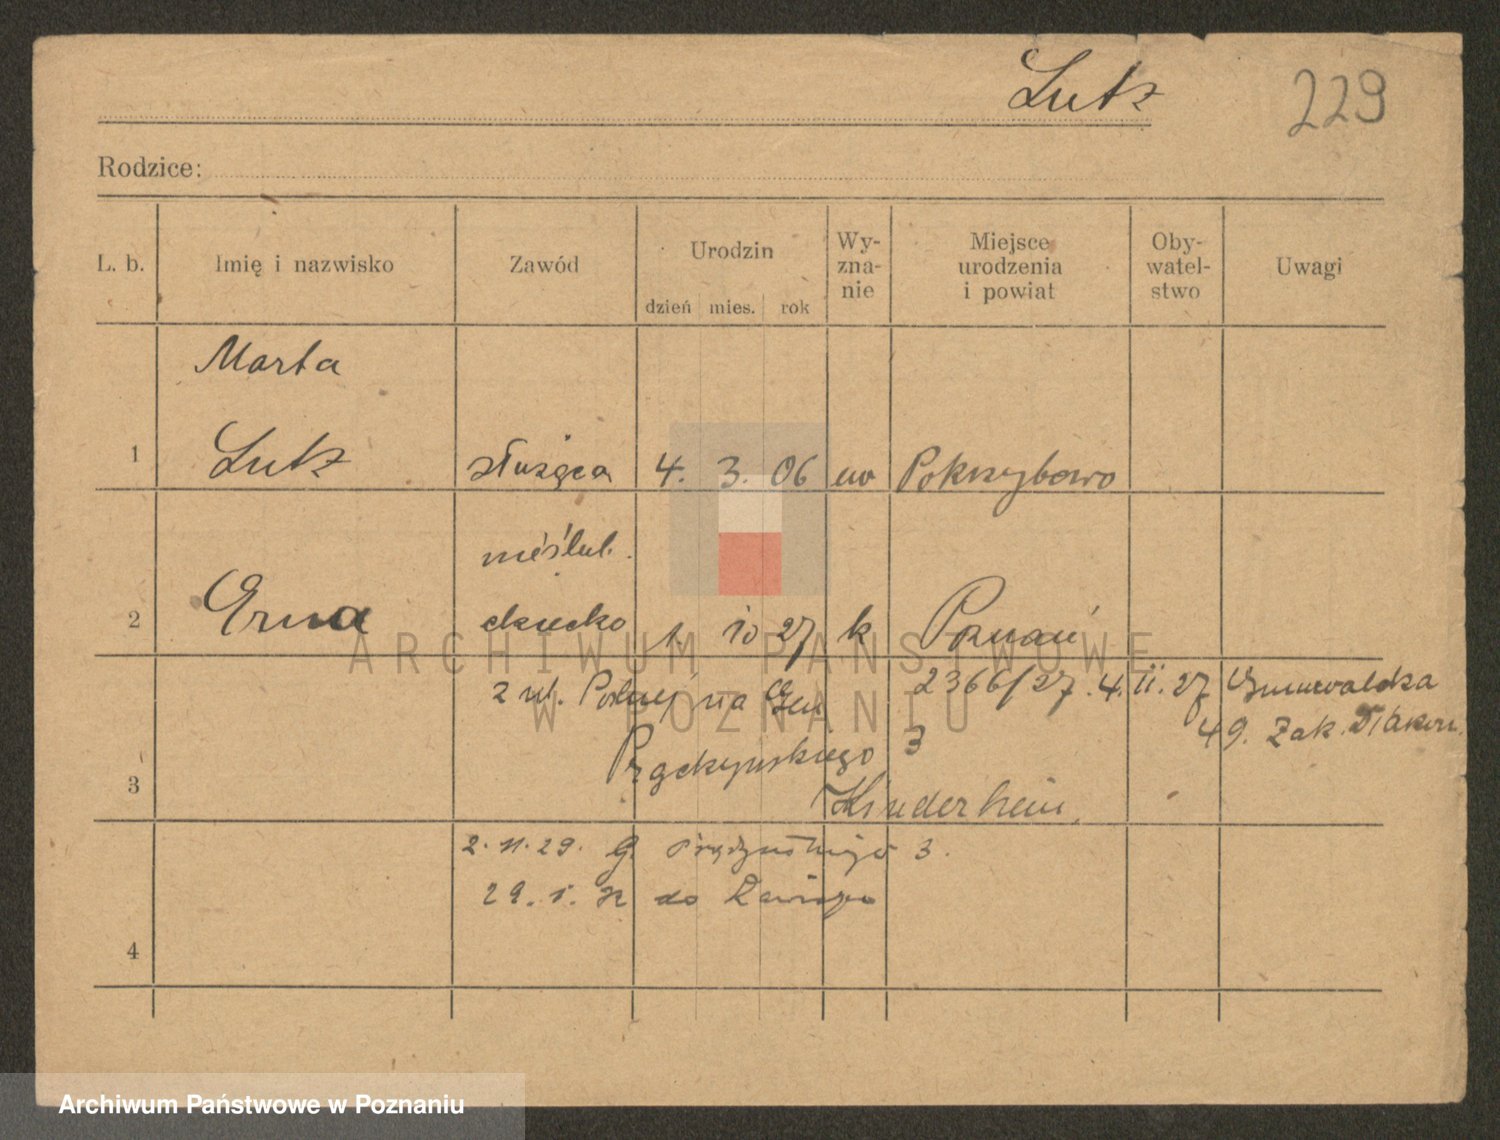 Lutz
229
Rodzice:
L. b.
Imię i nazwisko
Zawód
Urodzin
dzień mies. rok
Wy-
zna-
nie
Miejsce
urodzenia
i powiat
Oby-
watel-
stwo
Uwagi
Marta
1 Lutz służąca 4. 3. 06 ew Pokrzybowo
nieślub.
2 Erna dziecko 1. 10 27 k Poznań
ARCHIWUM PAŃSTWOWE
W POZNANIU
z ul. Polnej na Gen. 2366/27. 4. II. 27 Grunwaldzka
Prądzyńskiego 3 49. Zak. Diakon.
3 Kinderheim.
2. 11. 29. G. Prądzyńskiego 3.
29. 1. do
4
Archiwum Państwowe w Poznaniu